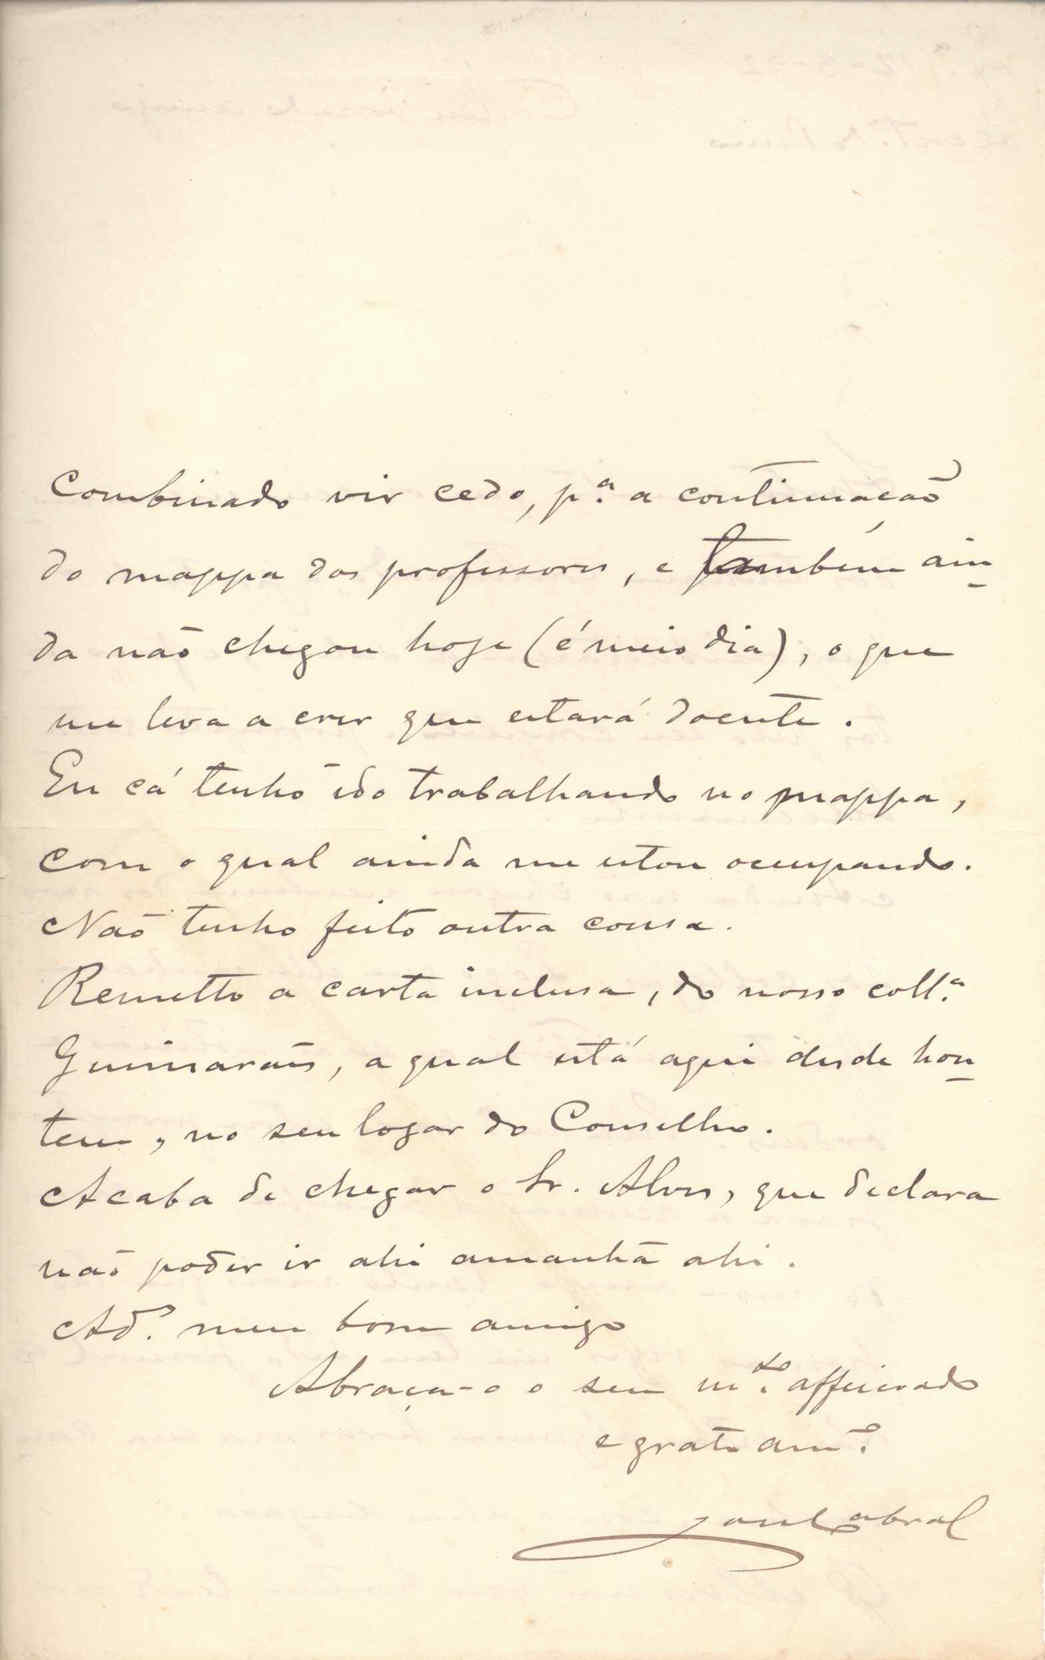 Combinado vir cedo, p.ª a continuação
do mappa dos professores, e também ain
da não chegou hoje (é meio dia), o que
me leva a crer que estará doente.
Eu cá tenho ido trabalhando no mappa,
com o qual ainda me estou occupando.
Não tenho feito outra cousa.
Remetto a carta inclusa, do nosso coll.ª
Guimarães, a qual está aqui desde hon
tem, no seu logar do Conselho.
Acaba de chegar o Sr. Alves, que declara
não poder ir ahi amanhã ahi.
Ad.º meu bom amigo
Abraça-o o seu m.to affeiçoado
e grato am.º
Cabral